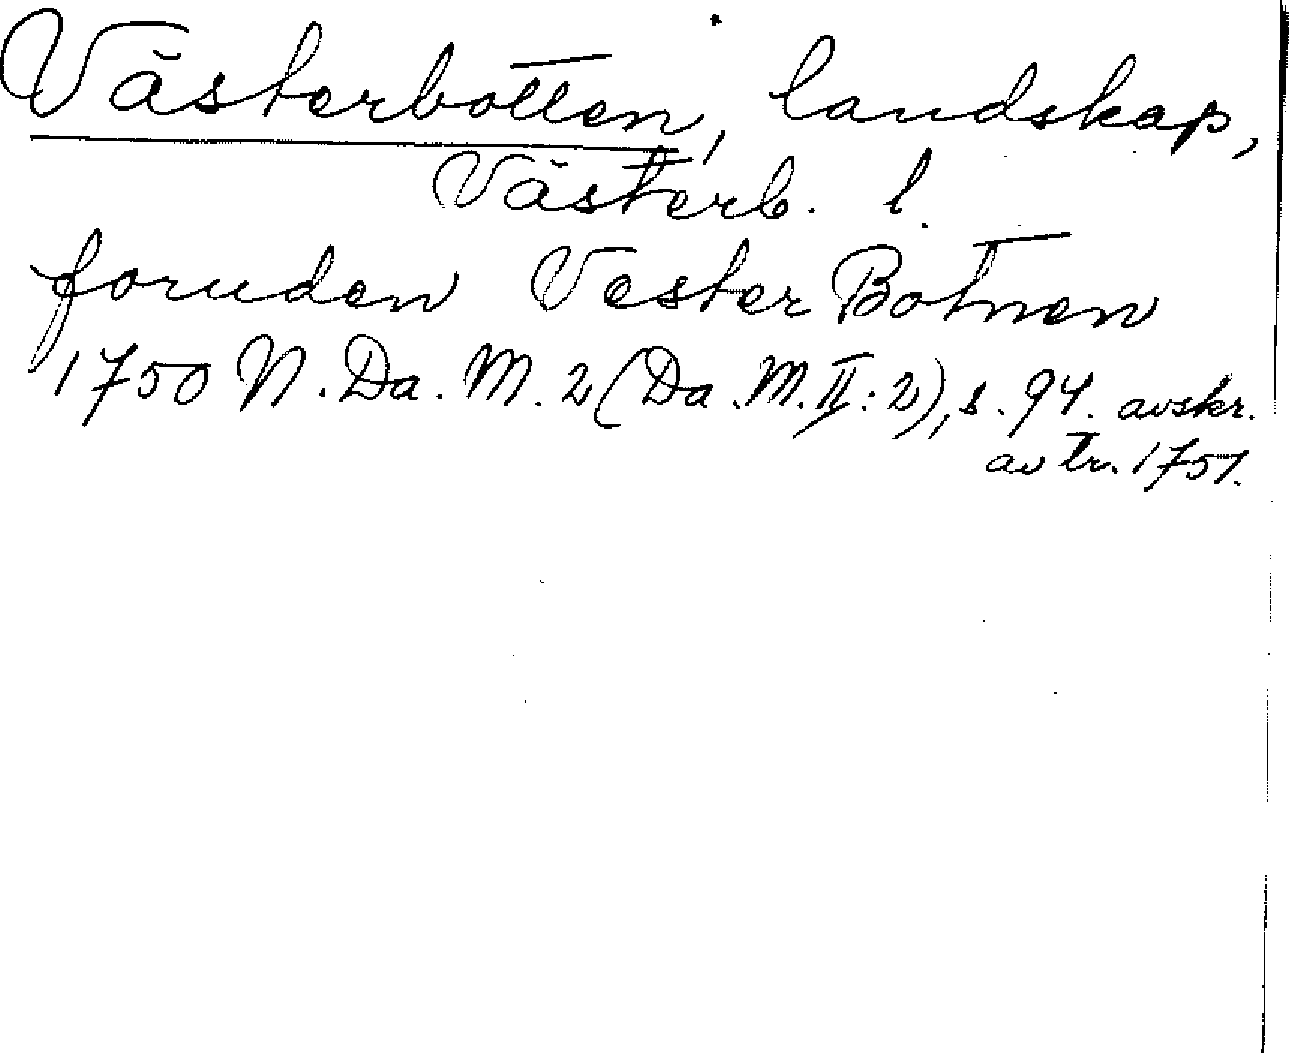 Västerbotten, landskap,
Västerb. l.
foruden Vester Botnen
1750 N. Da. M. 2 (Da. M. II: 2), s. 94. avskr.
av tr. 1751.